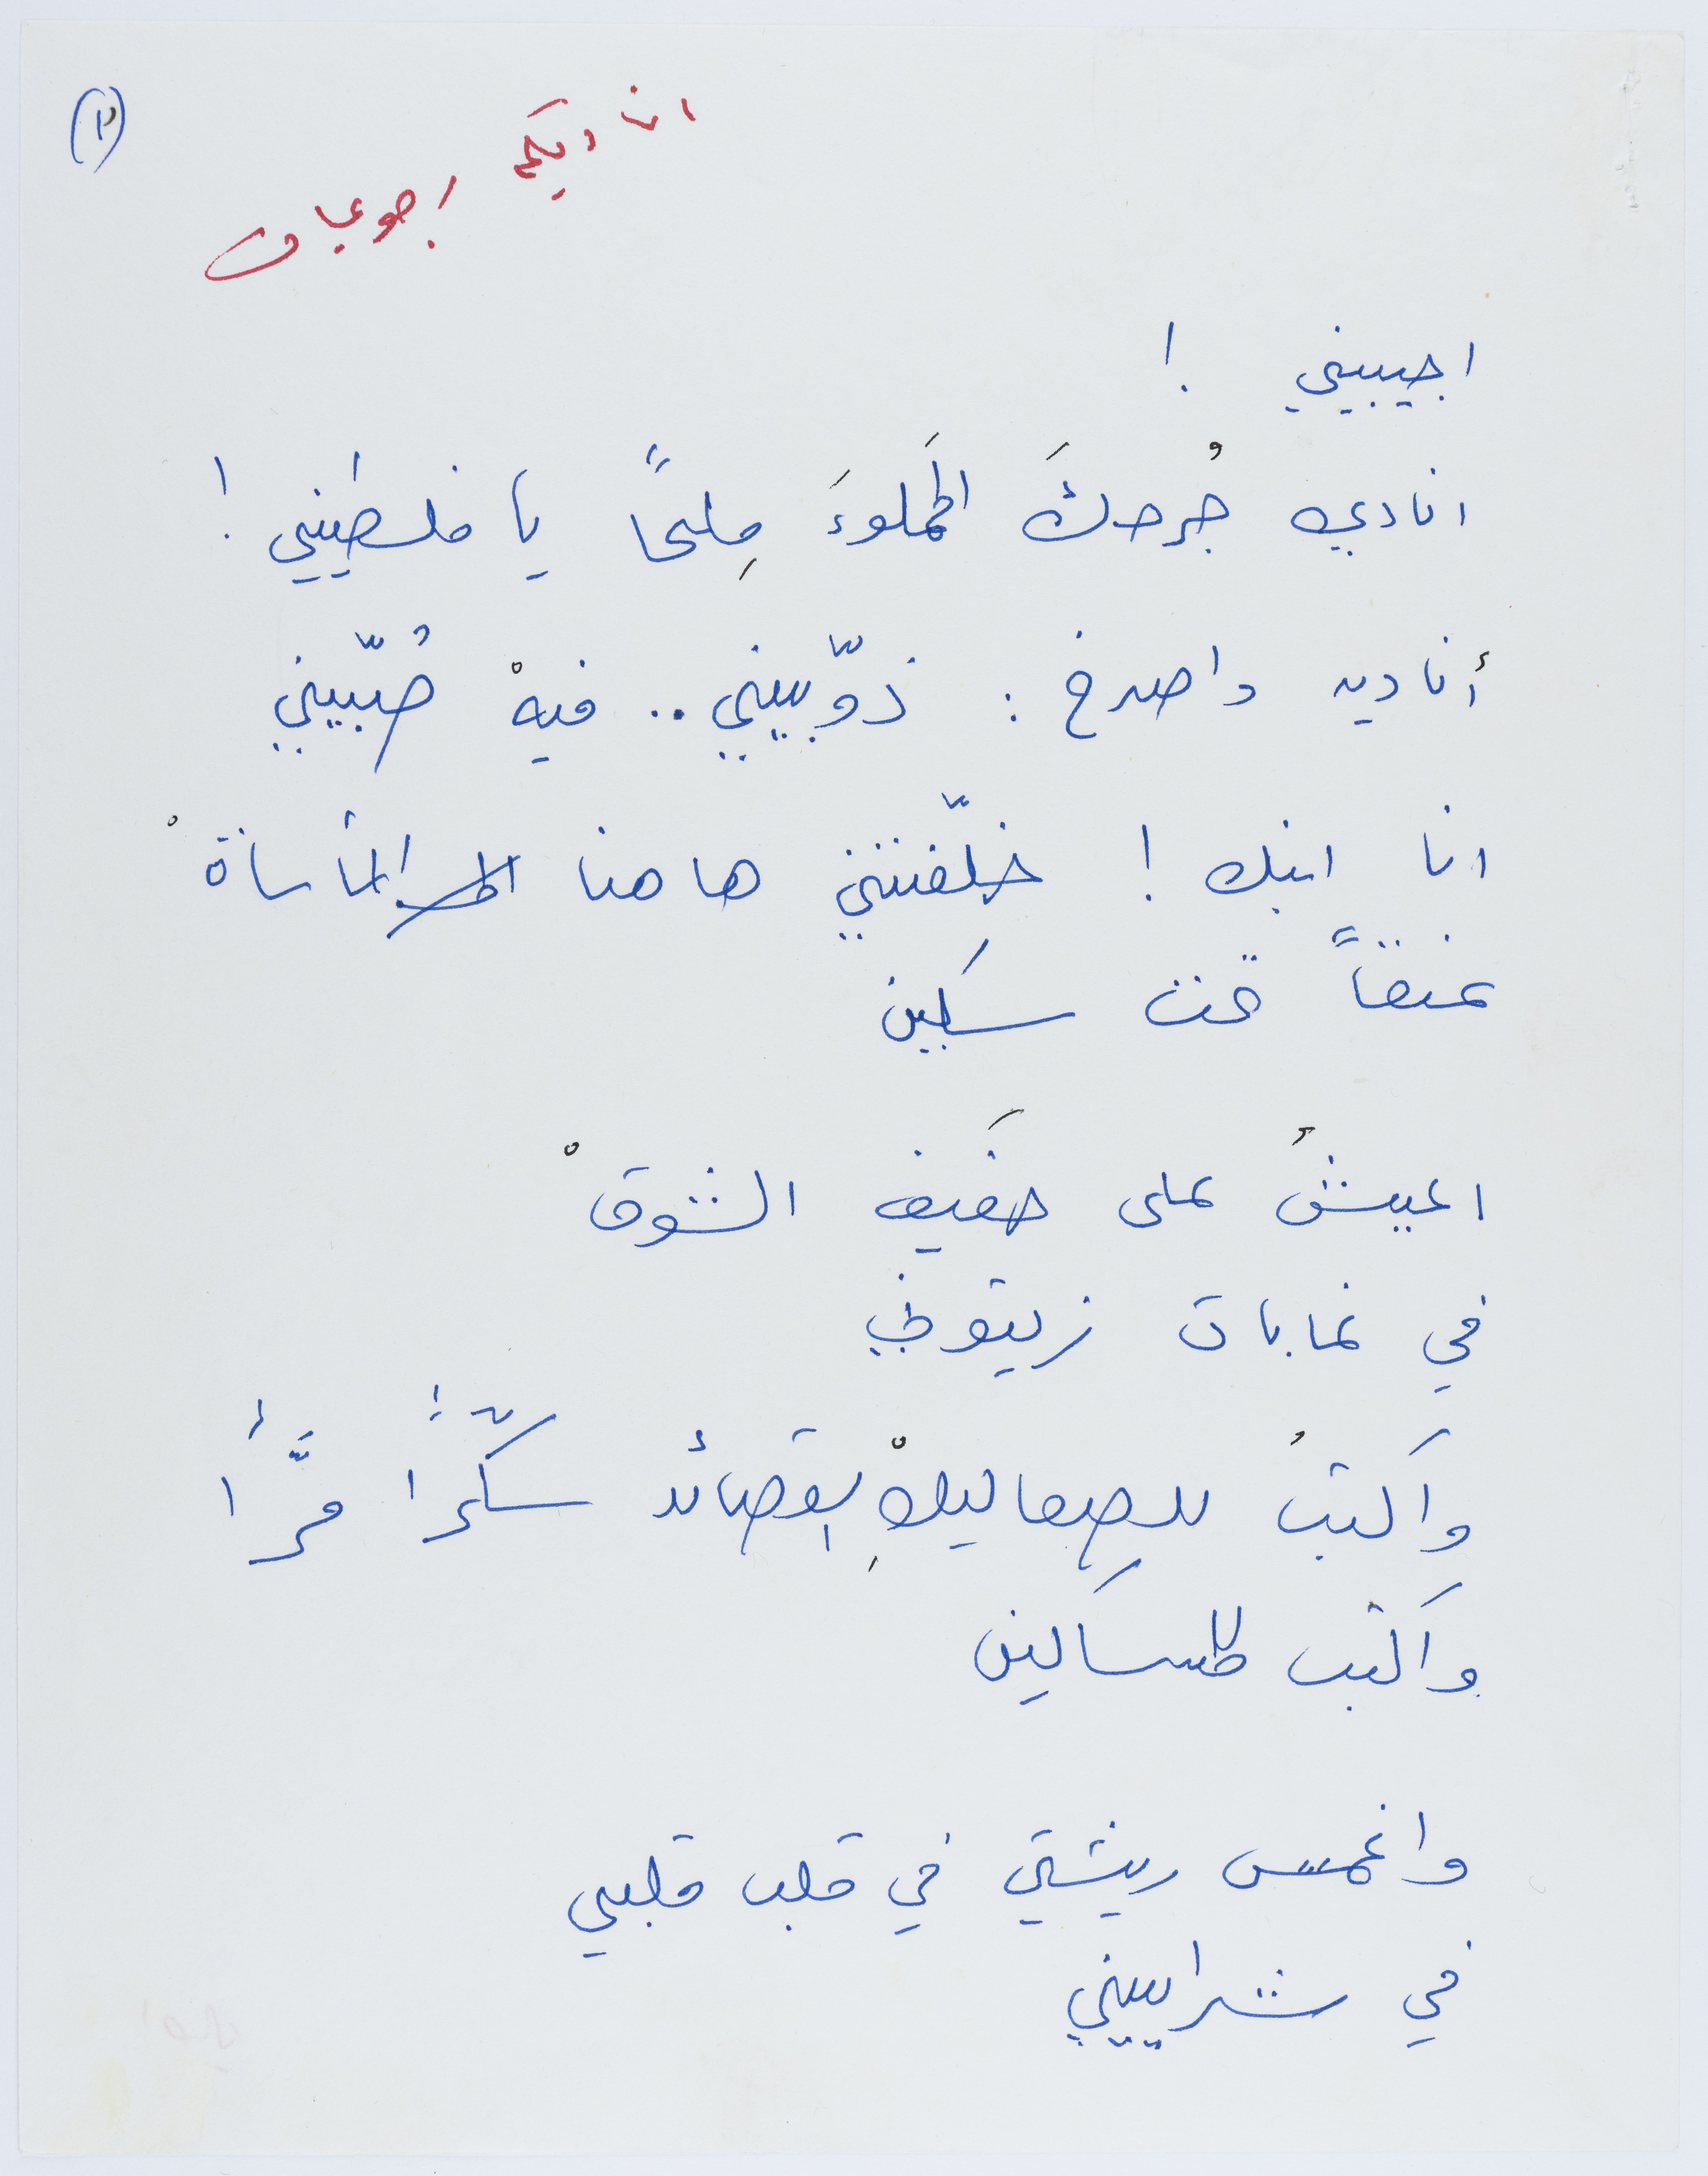 (٢)
اناديكم
اجيبيني !
انادي جُرحكَ المَملوءَ مِلحاً يا فلسطيني !
أناديه واصرخ : ذوّبيني .. فيهْ صُبّيني
انا ابنك ! خلّفتني ها هنا المأساةْ
عنقاً تحت سكين
اعيشُ على حَفيف الشوقْ
في غابات زيتوني
واكتبُ للصعاليكْ القصائد سكّراً مرَّاً
واكتب للمساكين
واغمس ريشتي في قلب قلبي
في شراييني